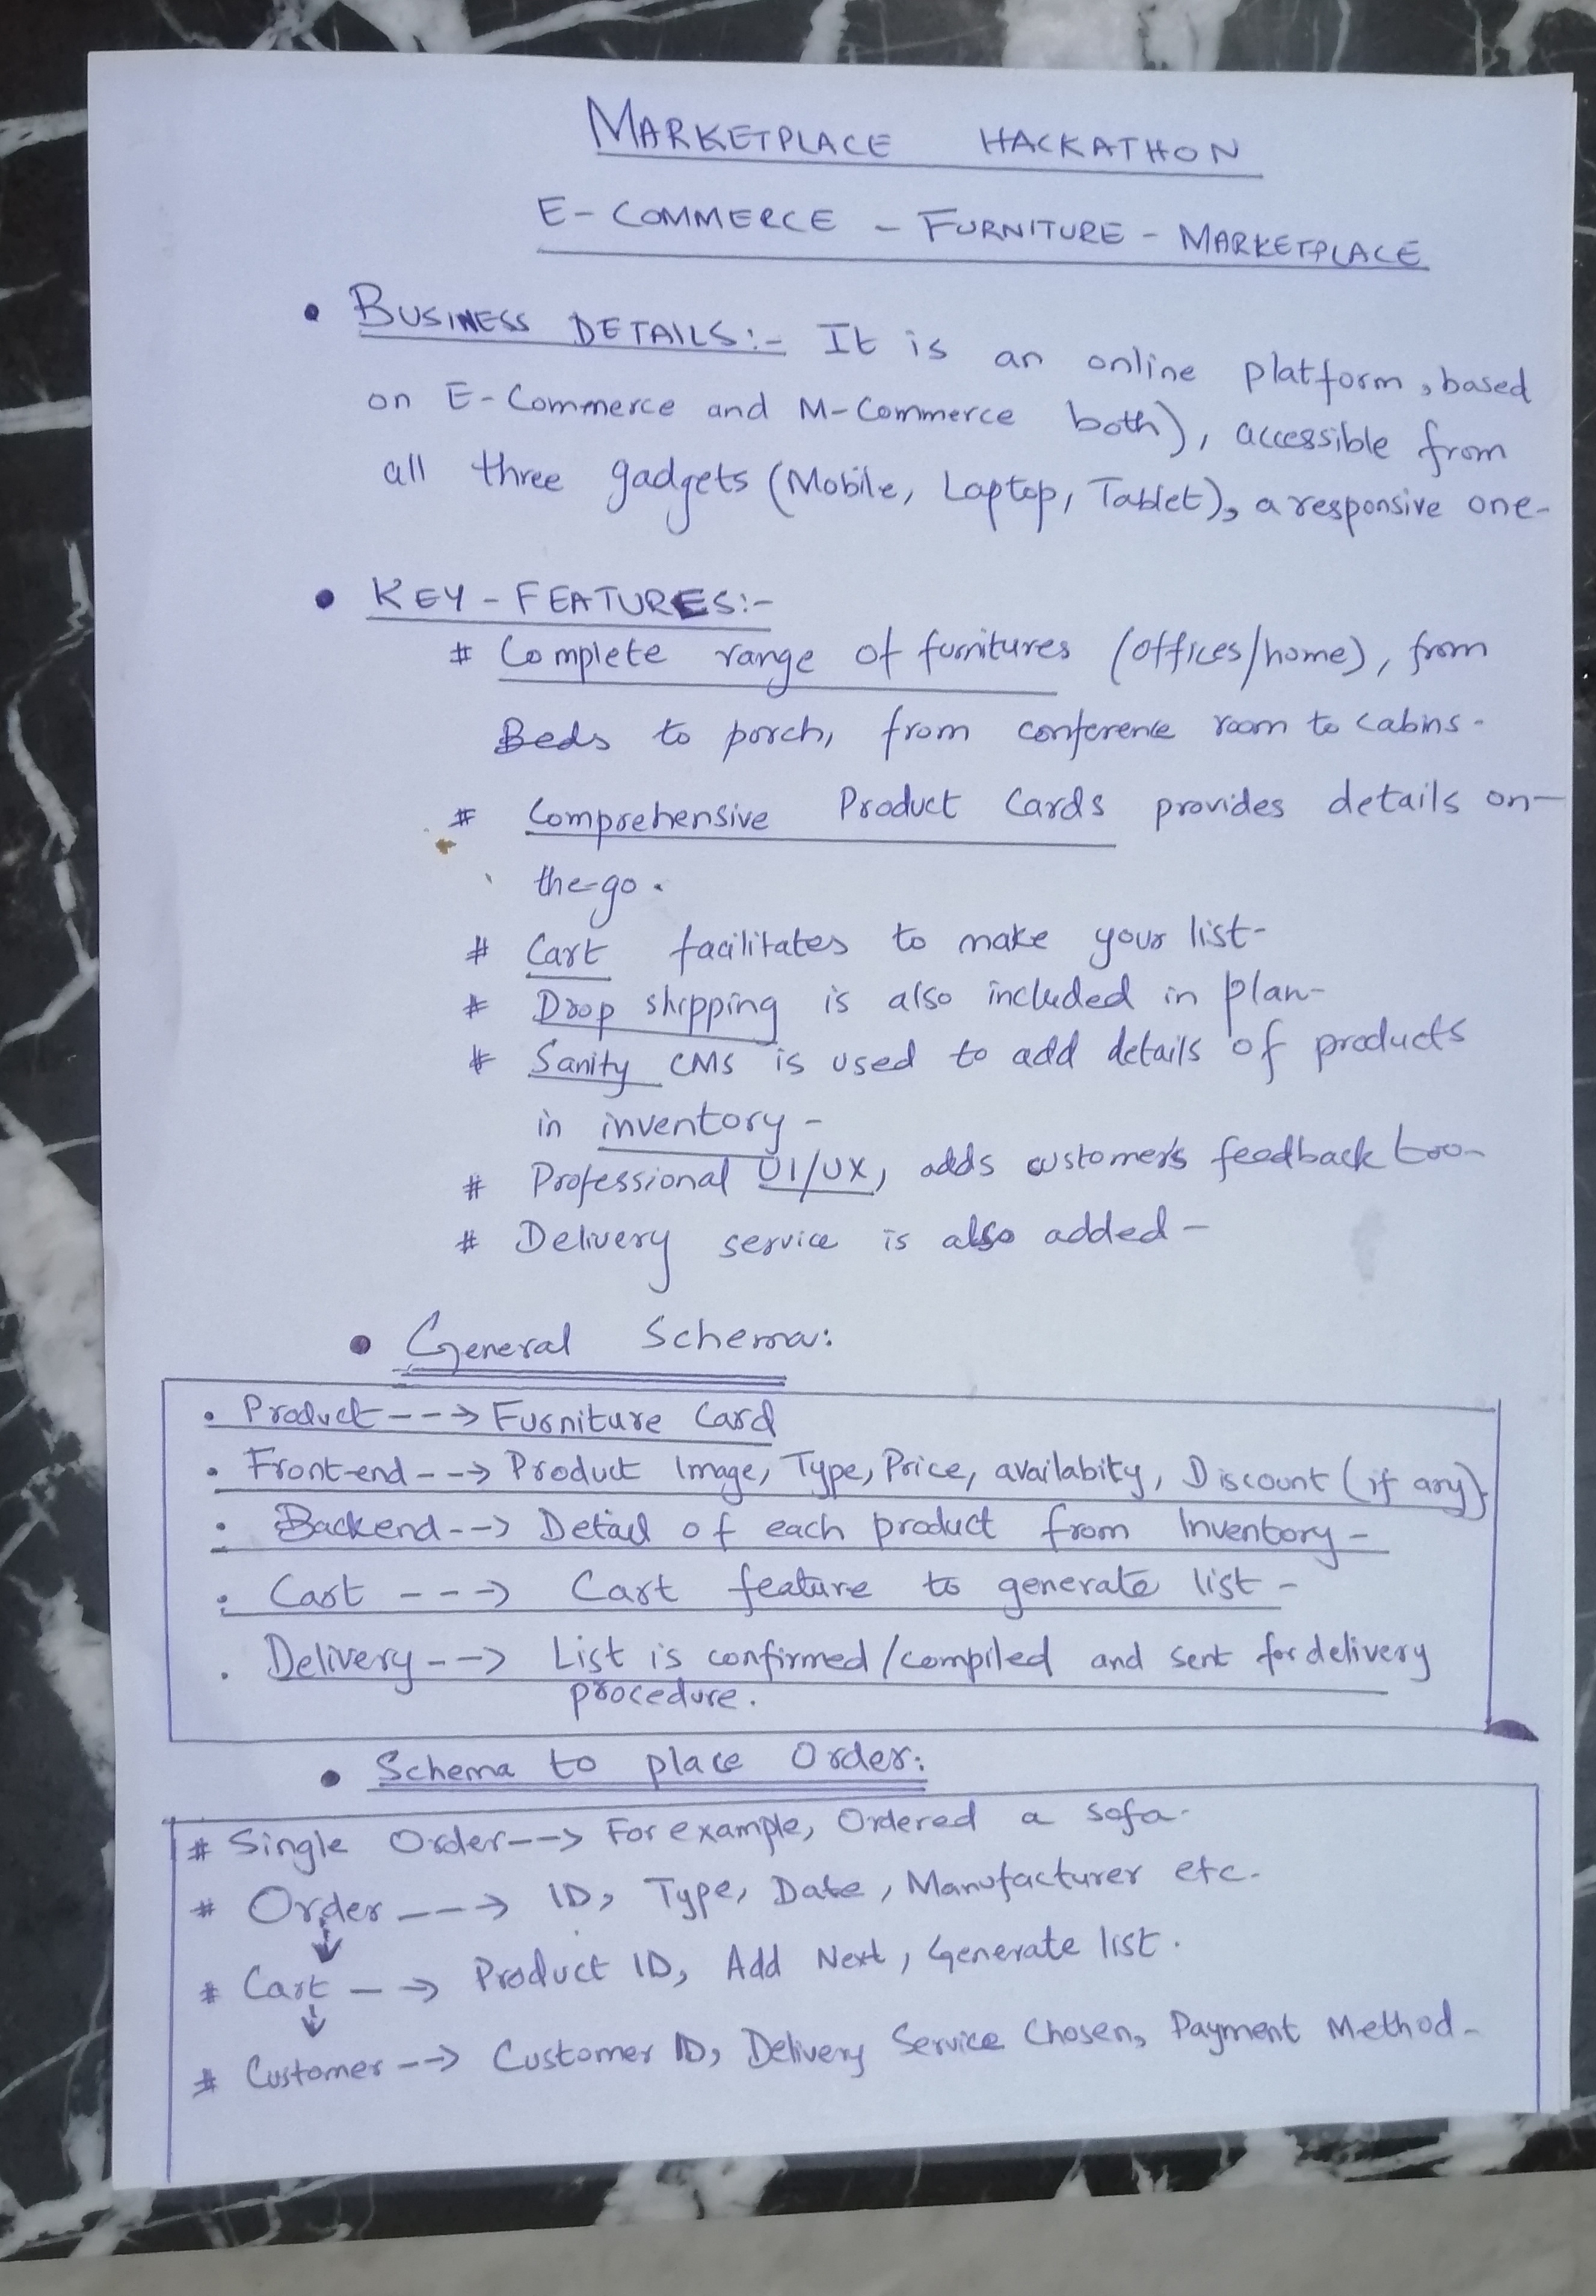 MARKETPLACE HACKATHON
E-COMMERCE - FURNITURE - MARKETPLACE
• BUSINESS DETAILS:- It is an online platform, based
on E-Commerce and M-Commerce both), accessible from
all three gadgets (Mobile, Laptop, Tablet), a responsive one-
• KEY-FEATURES:-
# Complete range of furnitures (offices/home), from
Beds to porch, from conference room to cabins-
# Comprehensive Product Cards provides details on-
the-go.
# Cart facilitates to make your list-
# Drop shipping is also included in plan-
# Sanity CMS is used to add details of products
in inventory-
# Professional UI/UX, adds customers feedback too-
# Delivery service is also added-
• General Schema:
• Product---> Furniture Card
• Front-end---> Product Image, Type, Price, availabity, Discount (if any)
• Backend--> Detail of each product from Inventory-
• Cart ---> Cart feature to generate list-
• Delivery--> List is confirmed/compiled and sent for delivery
procedure.
• Schema to place Order:
# Single Order--> For example, Ordered a sofa-
# Order ---> ID, Type, Date, Manufacturer etc.
# Cart --> Product ID, Add Next, Generate list.
# Customer --> Customer ID, Delivery Service Chosen, Payment Method-